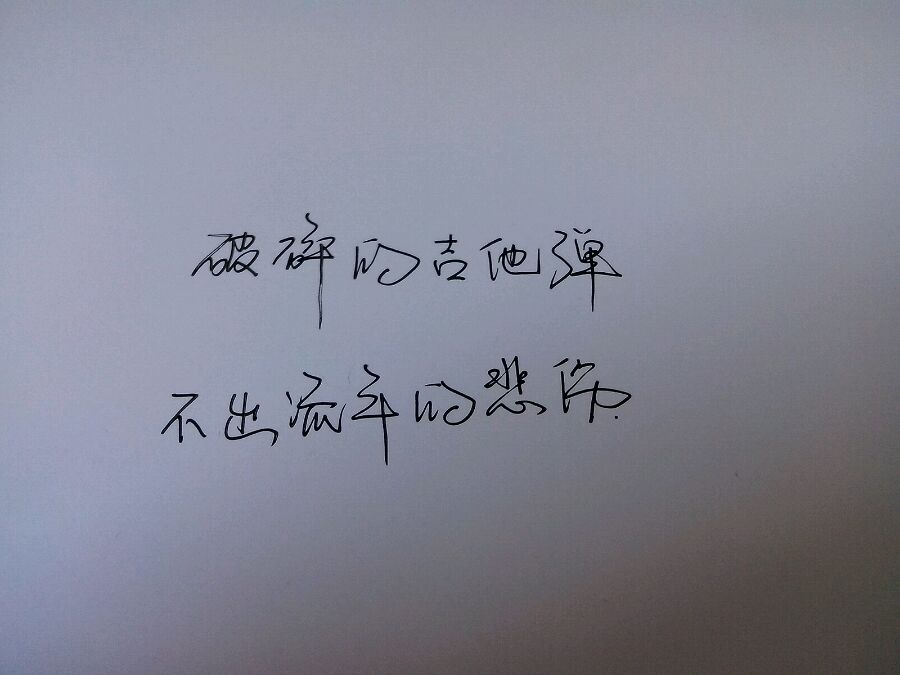 破碎的吉他弹
不出流年的悲伤.